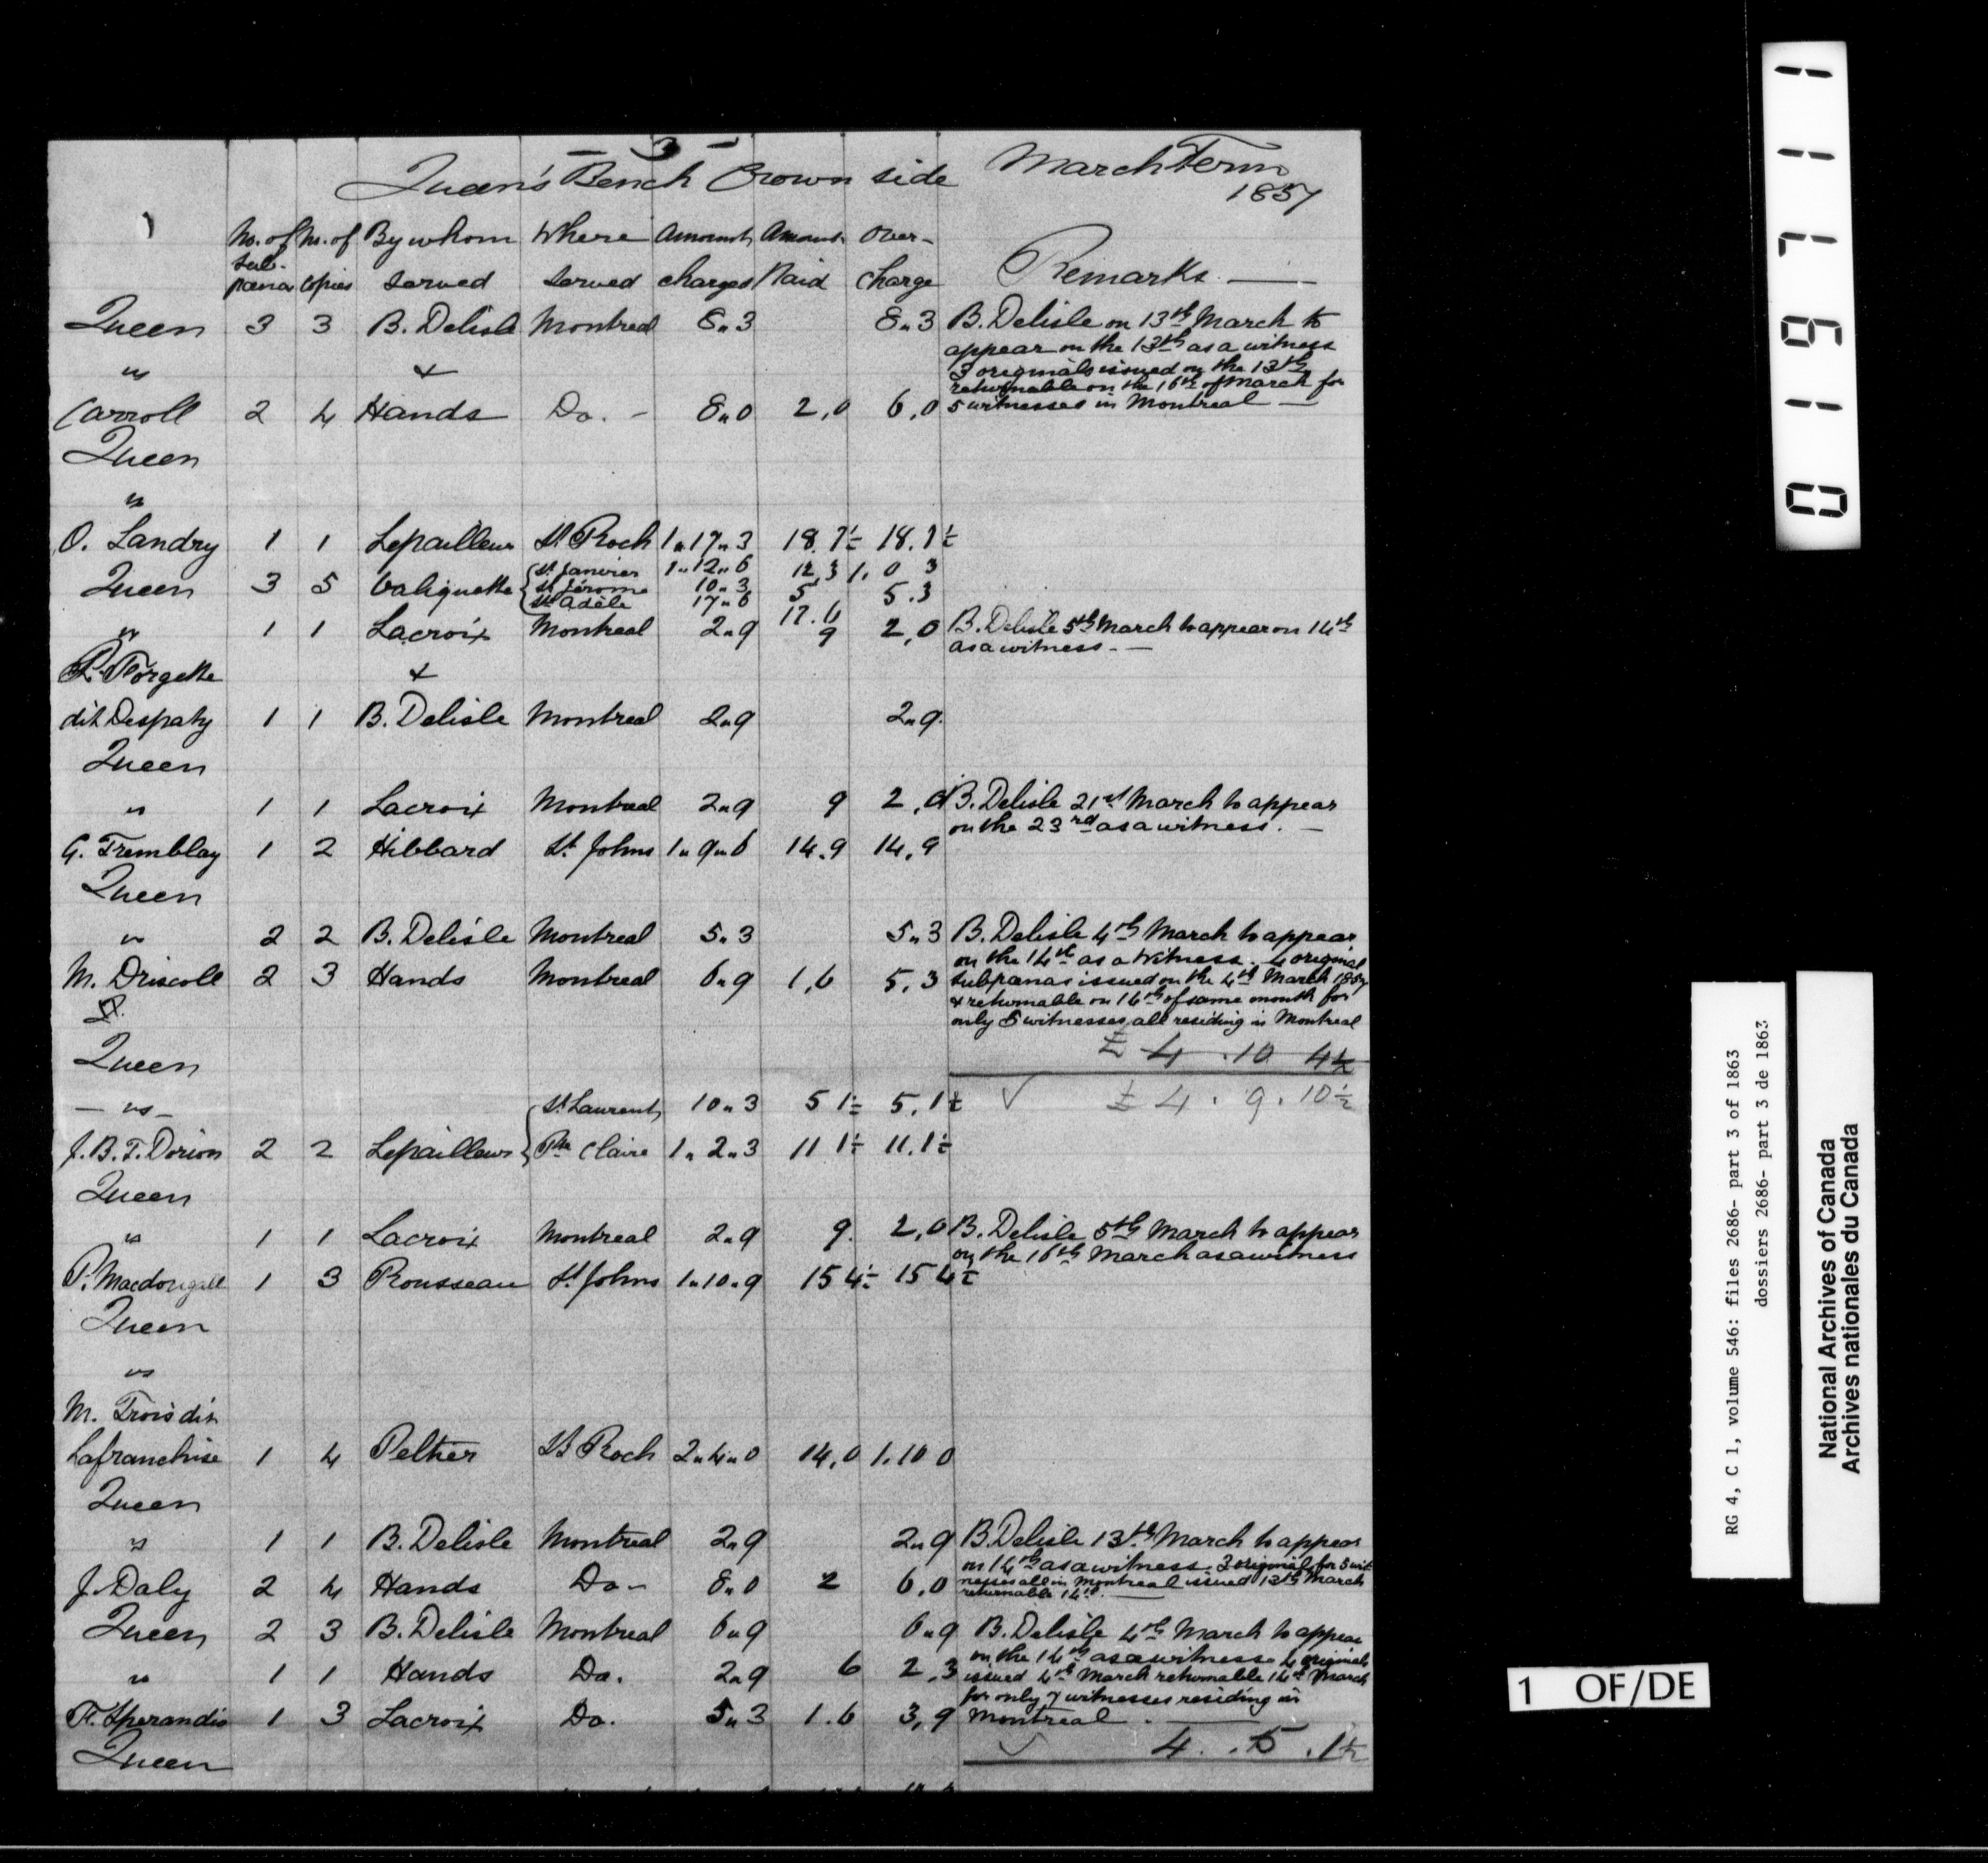 - 3 -
Queen's Bench Crown side March Term
1857
No. of No. of By whom Where Amount Amount Over-
Sub-
poenas copies served served charged Paid charge Remarks
Queen 3 3 B. Delisle Montreal 8"3 8"3 B. Delisle on 13th March to
appear on the 13th as a witness
vs & 3 originals issued on the 13th
returnable on the 16th of March for
Carroll 2 4 Hands Do. - 8"0 2,0 6,0 5 witnesses in Montreal
Queen
vs
O. Landry 1 1 Lepailleur St Roch 1"17"3 18.7½ 18.7½
St Janvier 1"12"6 12,3 1.0 3
Queen 3 5 Valiquette St Jérome 10"3 5 5.3
St Adèle 17"6 17.6
vs 1 1 Lacroix Montreal 2"9 9 2,0 B. Delisle 5th March to appear on 14th
as a witness. -
P. Forgette &
dit Despaty 1 1 B. Delisle Montreal 2"9 2"9.
Queen
vs 1 1 Lacroix Montreal 2"9 9 2,0 B. Delisle 21st March to appear
on the 23rd as a witness. -
G. Tremblay 1 2 Hibbard St Johns 1"9"6 14.9 14,9
Queen
vs 2 2 B. Delisle Montreal 5"3 5"3 B. Delisle 4th March to appear
on the 14th as a witness. 4 original
M. Driscoll 2 3 Hands Montreal 6"9 1,6 5,3 subpoenas issued on the 4th March 1857
& returnable on 14th of same month for
only 5 witnesses all residing in Montreal
£ 4 . 10 4½
Queen
£ 4 . 9 . 10½
- vs - St Laurent 10"3 5 1½ 5,1½
J. B. T. Dorion 2 2 Lepailleur Pte Claire 1"2"3 11 1½ 11.1½
Queen
vs 1 1 Lacroix Montreal 2"9 9. 2,0 B. Delisle 5th March to appear
on the 16th March as a witness
P. Macdougall 1 3 Rousseau St Johns 1"10"9 15 4½ 15 4½
Queen
vs
M. Trois dit
Lafranchise 1 4 Peltier St Roch 2"4"0 14,0 1.10 0
Queen
vs 1 1 B. Delisle Montreal 2"9 2"9 B. Delisle 13th March to appear
on 14th as a witness. 3 original for 5 wit
J. Daly 2 4 Hands Do - 8"0 2 6,0 nesses all in Montreal issued 13th March
returnable 14th.
Queen 2 3 B. Delisle Montreal 6"9 6"9 B. Delisle 4th March to appear
on the 14th as a witness 4 originals
vs 1 1 Hands Do. 2"9 6 2,3 issued 4th March returnable 14th March
for only 7 witnesses residing in
F. Sperandio 1 3 Lacroix Do. 5"3 1.6 3,9 Montreal.
4 . . 5 . 1½
Queen
019711
RG 4, C 1, volume 546: files 2686- part 3 of 1863
dossiers 2686- part 3 de 1863
National Archives of Canada
Archives nationales du Canada
1 OF/DE